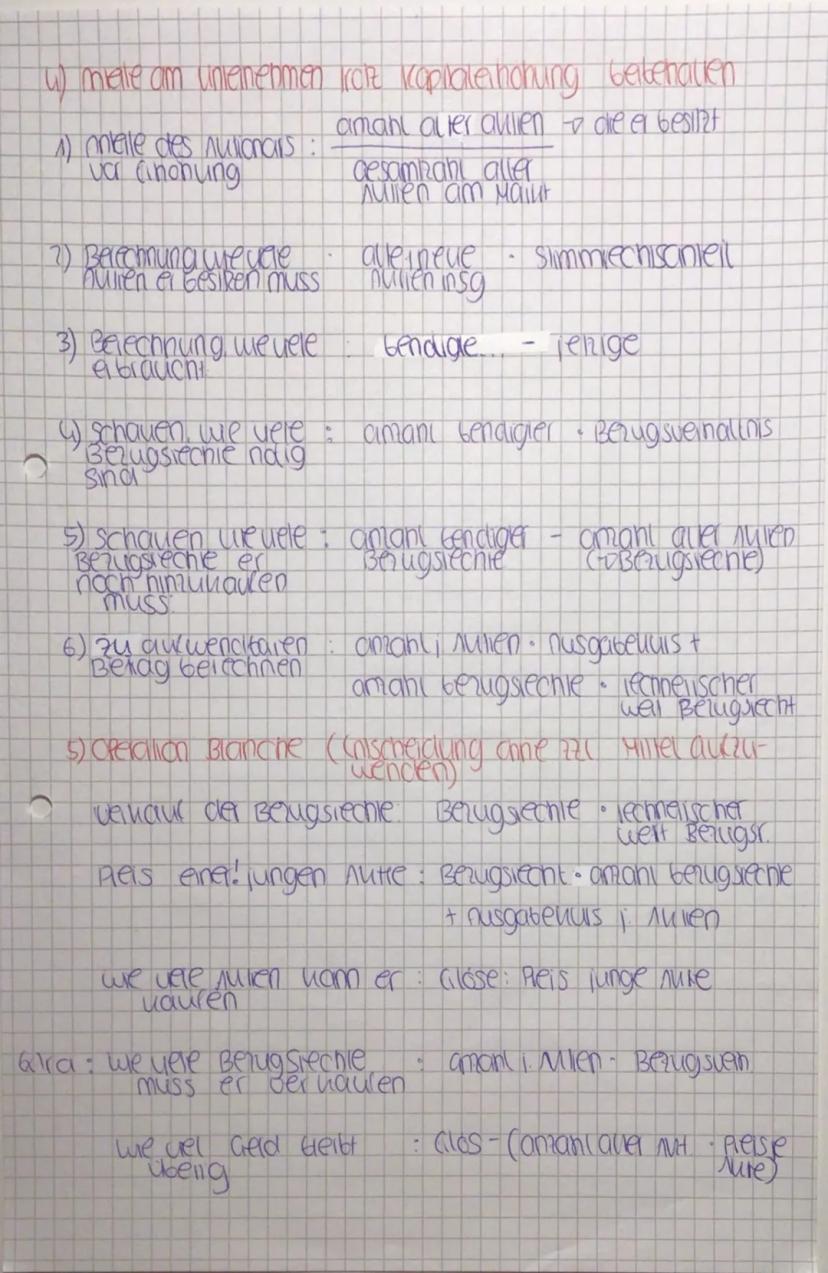 4) Anteile am Unternehmen trotz Kapitalerhöhung beibehalten
1) Anteile des Aktionärs : Anzahl alter Aktien → die er besitzt
vor Erhöhung Gesamtzahl aller
Aktien am Markt
2) Berechnung wie viele : alle neue · Stimmrechtsanteil
Aktien er besitzen muss Aktien insg
3) Berechnung, wie viele : benötigte... - jetzige
er braucht
4) schauen, wie viele : Anzahl benötigter · Bezugsverhältnis
Bezugsrechte nötig
sind
5) schauen wie viele : Anzahl benötigter - Anzahl alter Aktien
Bezugsrechte er Bezugsrechte (→ Bezugsrechte)
noch hinzukaufen
muss
6) zu aufwendbaren : Anzahl j Aktien · Ausgabekurs +
Betrag berechnen Anzahl Bezugsrechte · rechnerischer
Wert Bezugsrecht
5) Operation Blanche (Entscheidung ohne zzl Mittel aufzu-
wenden)
Verkauf der Bezugsrechte : Bezugsrechte · rechnerischer
Wert Bezugsr.
Preis einer! jungen Aktie : Bezugsrecht · Anzahl Bezugsrechte
+ Ausgabekurs j. Aktien
wie viele Aktien kann er : Erlöse : Preis junge Aktie
kaufen
Extra : wie viele Bezugsrechte : Anzahl j. Aktien · Bezugsverh
muss er verkaufen
wie viel Geld bleibt : Erlös - (Anzahl alter Akt · Preise
übrig Aktie)